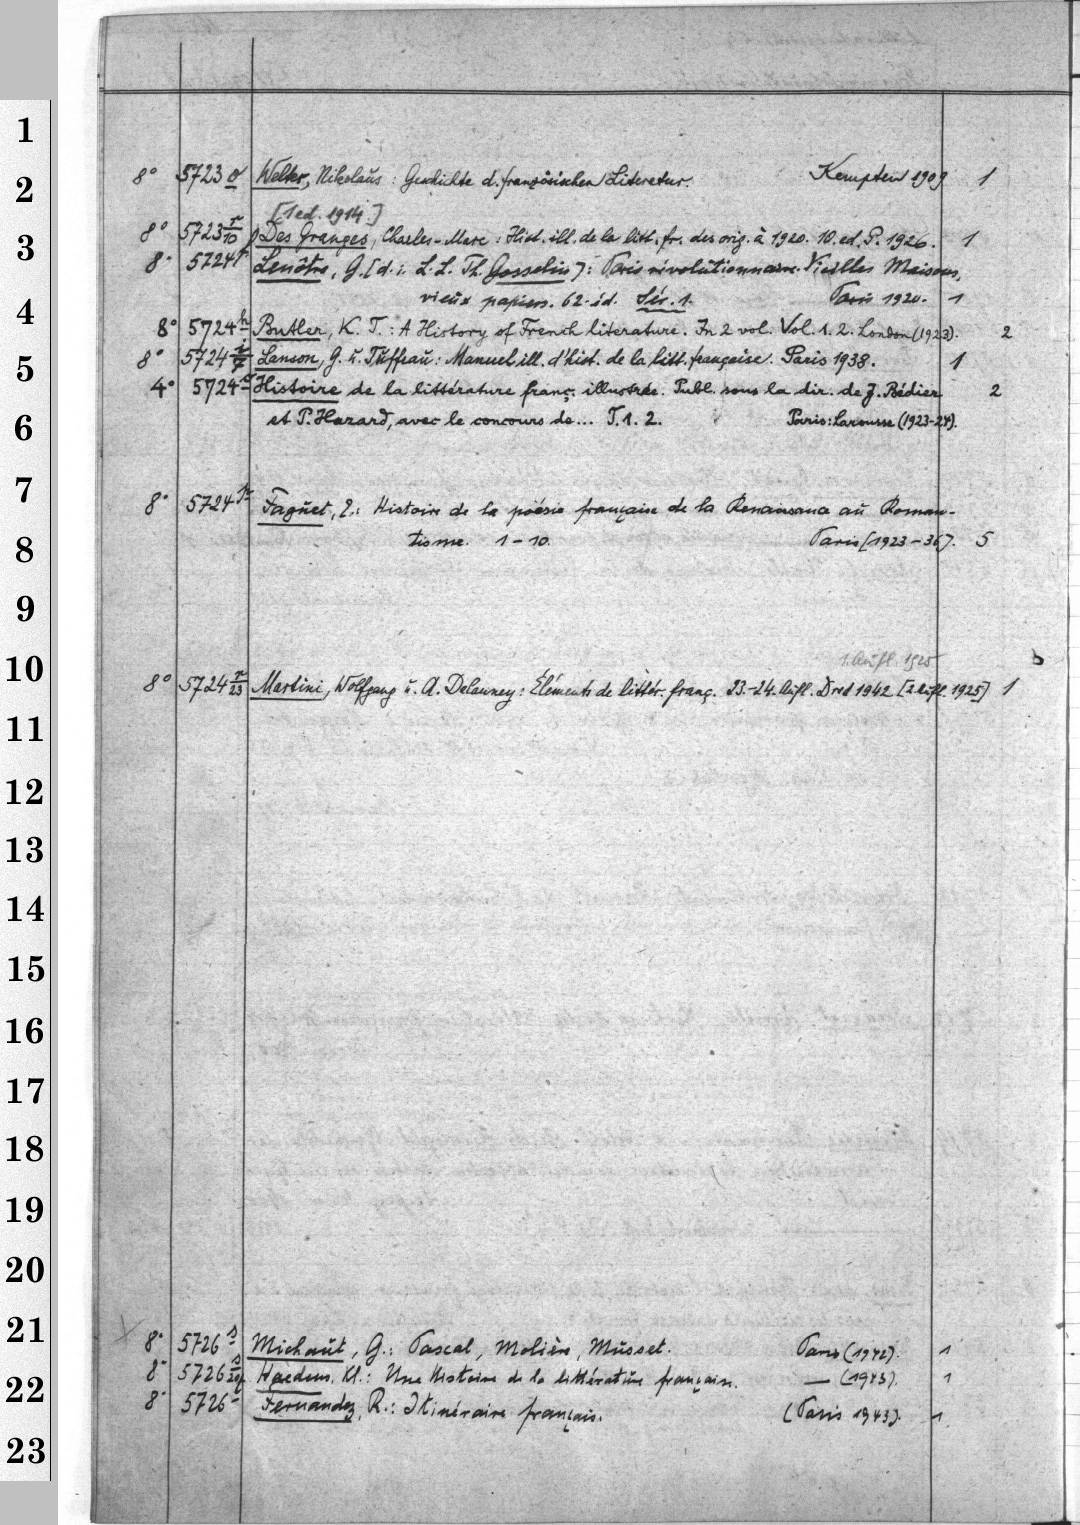 1
2
3
4
5
6
7
8
9
10
11
12
13
14
15
16
17
18
19
20
21
22
23
8° 5723 o Welter, Nikolaus: Geschichte d. französischen Literatur. Kempten 1909 1
[1 ed. 1914.]
8° 5723 r/10 Des Granges, Charles-Marc: Hist. ill. de la litt. fr. des orig. à 1920. 10. ed. P. 1926. 1
8° 5724 Lenôtre, G. [d. i. L. L. Th. Gosselin]: Paris révolutionnaire. Vieilles Maisons,
vieux papiers. 62. éd. Sér. 1. Paris 1920. 1
8° 5724 h Butler, K. T.: A History of French literature. In 2 vol. Vol. 1. 2. London (1923). 2
8° 5724 Lanson, G. u. Tuffrau: Manuel ill. d'hist. de la litt. française. Paris 1938. 1
4° 5724 Histoire de la littérature franç. illustrée. Publ. sous la dir. de J. Bédier 2
et P. Hazard, avec le concours de... T. 1. 2. Paris: Larousse (1923-24).
8° 5724 Faguet, E.: Histoire de la poésie française de la Renaissance au Roman-
tisme. 1-10. Paris [1923-36]. 5
1. Aufl. 1925
8° 5724 r/23 Martini, Wolfgang u. A. Delauney: Éléments de littér. franç. 23.-24. Aufl. Dresd 1942 [2 Aufl. 1925] 1
8° 5726 s Michaut, G.: Pascal, Molière, Musset. Paris (1942). 1
8° 5726 Haedens, Kl.: Une Histoire de la littérature française. — (1943). 1
8° 5726 Fernandez, R.: Itinéraire français. (Paris 1943). 1